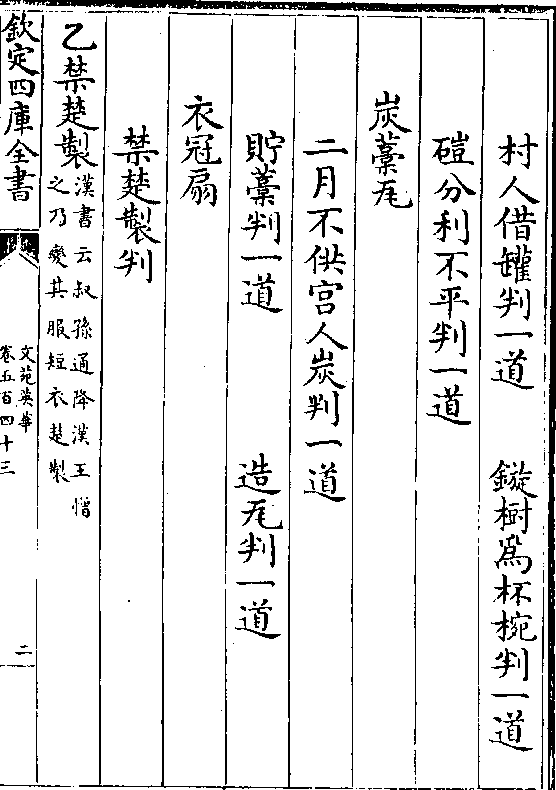 村人借罐判一道 鏇樹為杯椀判一道
磑分利不平判一道
炭藁瓦
二月不供宫人炭判一道
貯藁判一道 造瓦判一道
衣冠扇
禁楚製判
乙禁楚製漢書云叔孫通降漢王憎
之乃變其服短衣楚製
欽定四庫全書
文苑英華
卷五百四十三
二